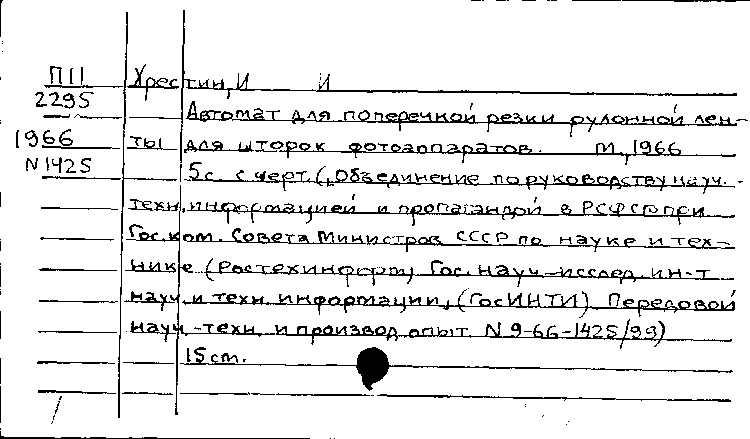 П11 Хрестин, И И
2295 Автомат для поперечной резки рулонной лен-
1966 ты для шторок фотоаппаратов. М., 1966
N1425 5с. с черт. (Объединение по руководству науч.-
техн. информацией и пропагандой в РСФСР при
Гос. ком. Совета Министров СССР по науке и тех-
нике (Ростехинформ) Гос. науч.-исслед. ин-т
науч. и техн. информации, (ГосИНТИ). Передовой
науч.-техн. и производ. опыт. N 9-66-1425/99)
15 cm.